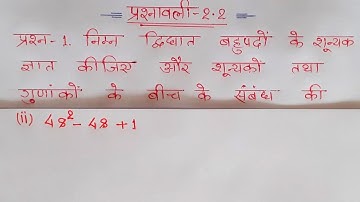 प्रश्नावली-2.2
प्रश्न-1. निम्न द्विघात बहुपदों के शून्यक
ज्ञात कीजिए और शून्यकों तथा
गुणांकों के बीच के संबंध की
(ii) 4s² - 4s + 1